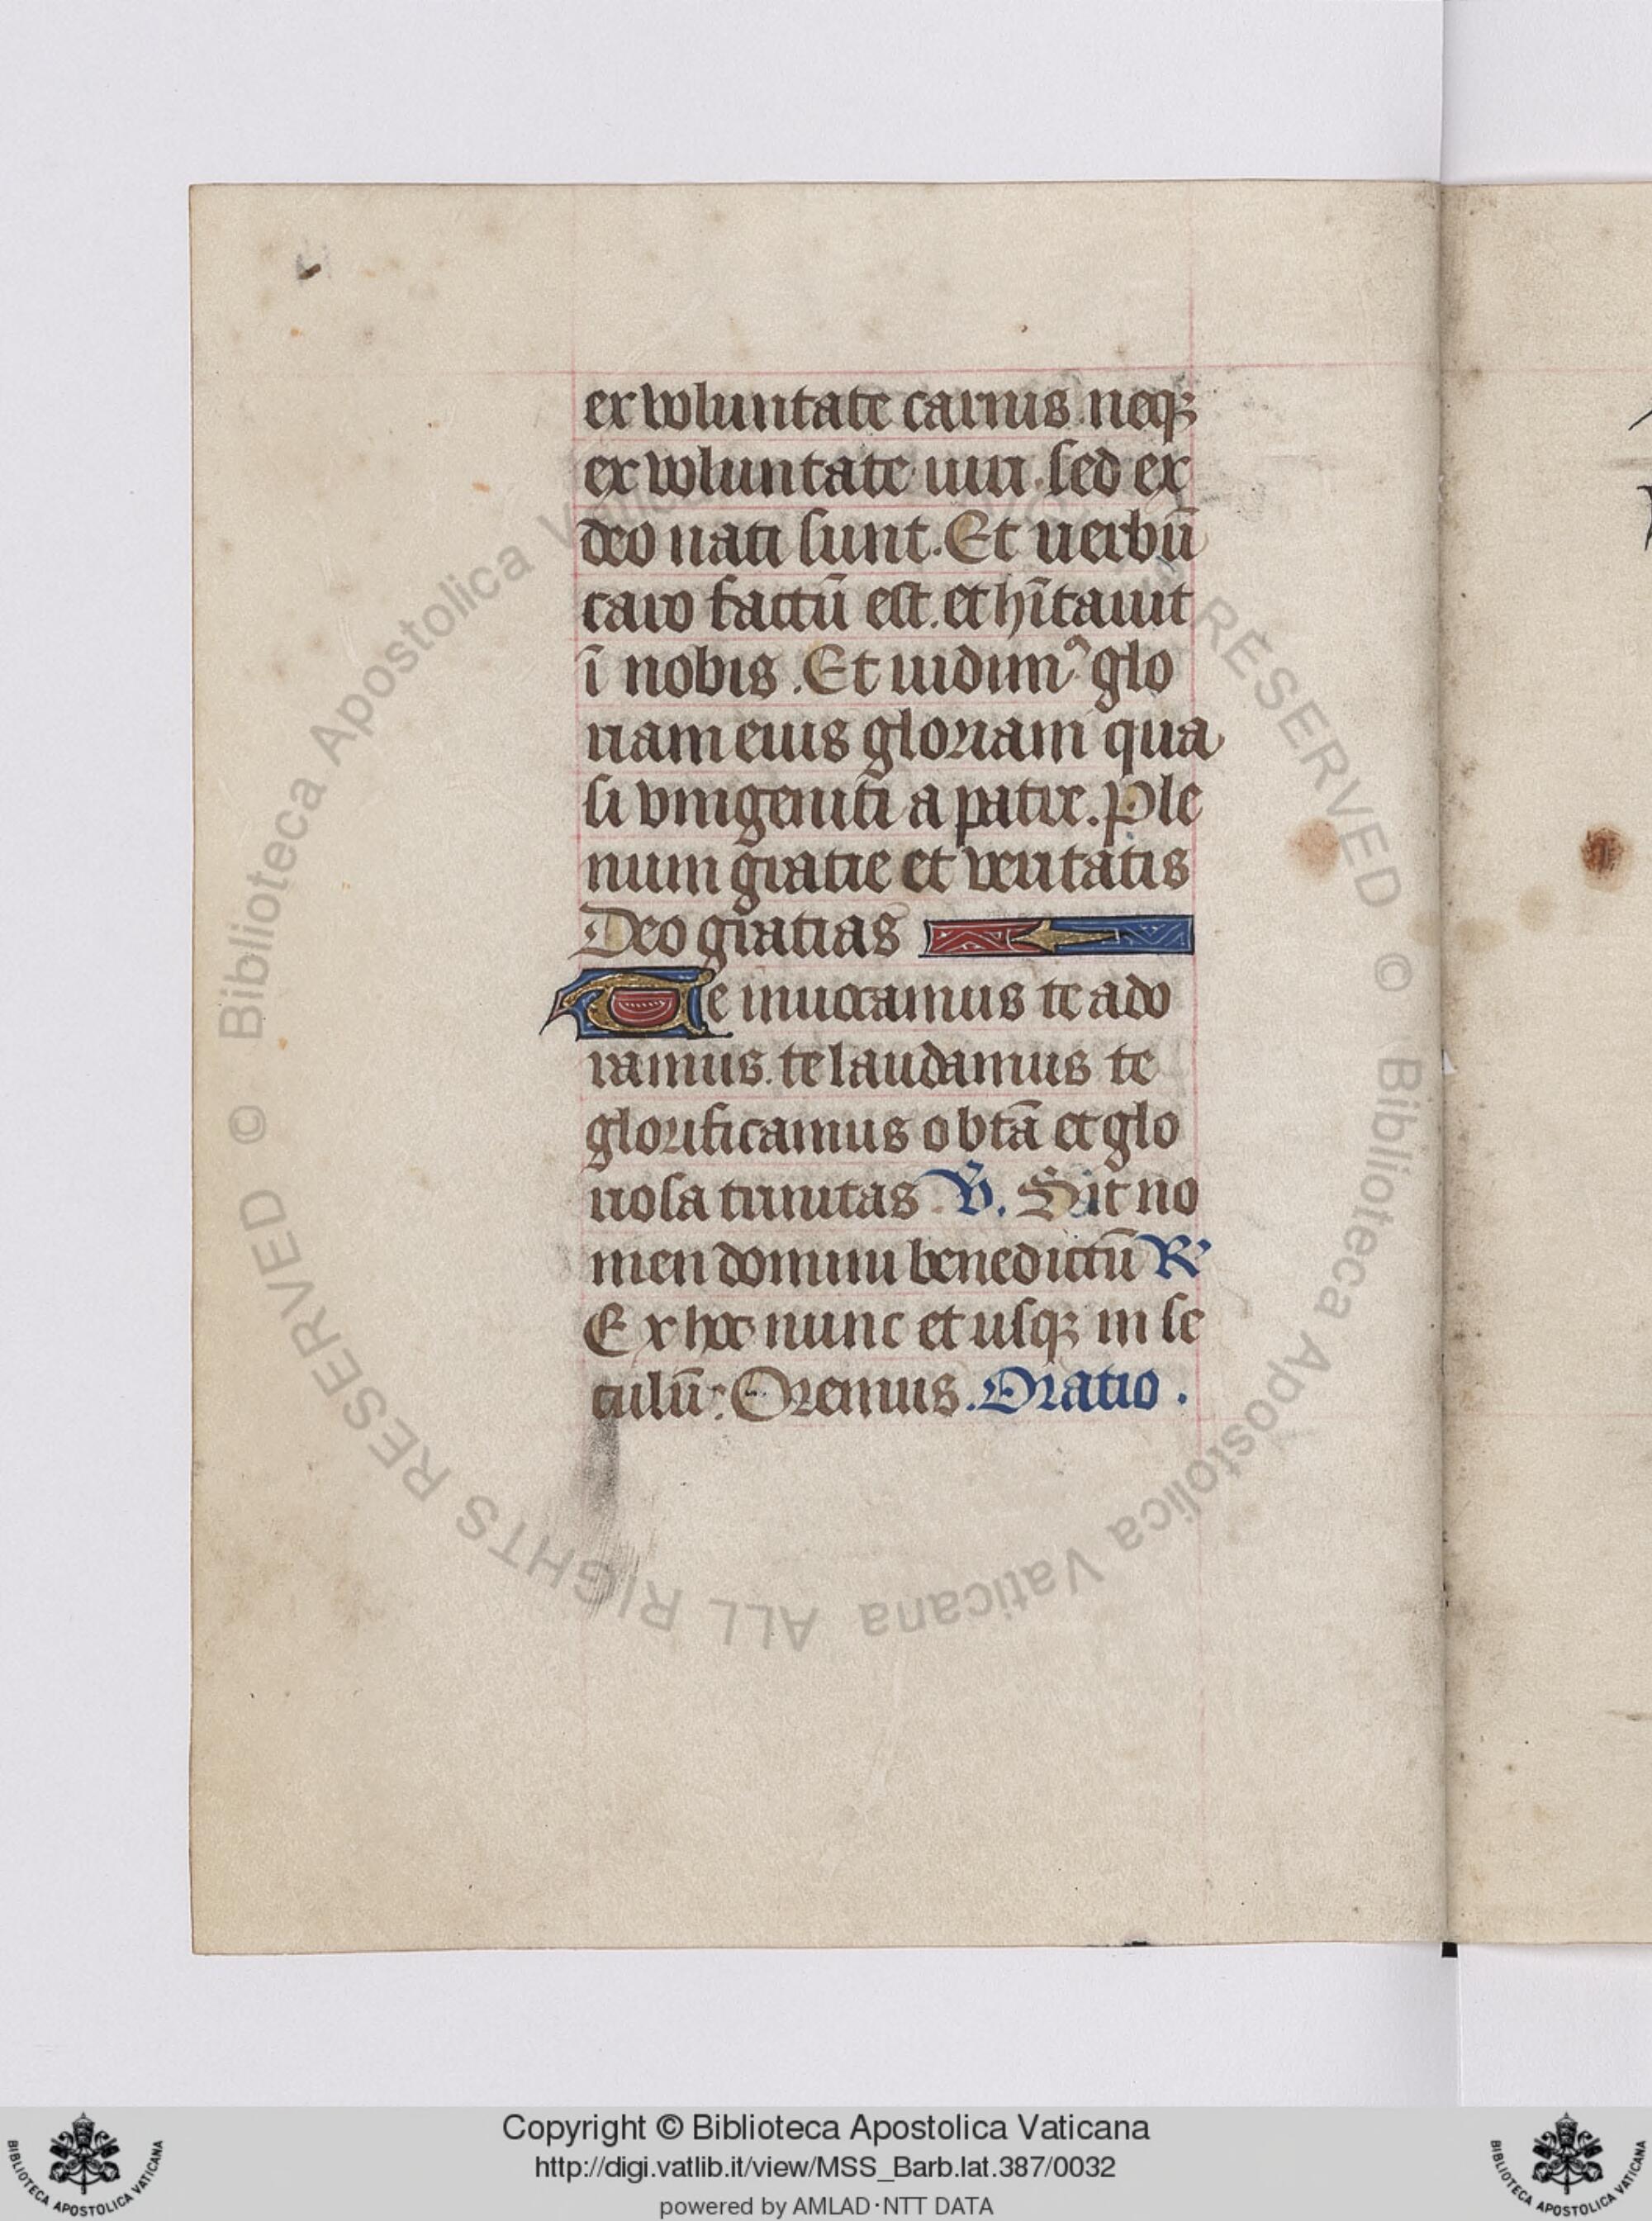 ex voluntate carnis neqꝫ
ex voluntate uiri. sed ex
deo nati sunt. Et uerbū
caro factū est. et hītauit
ī nobis. Et uidimꝰ glo
riam eius gloriam qua
si vnigeniti a patre. Ple
num gratie et veritatis
Deo gratias
Te inuocamus te ado
ramus. te laudamus te
glorificamus o btā et glo
riosa trinitas. V̄. Sit no
men domini benedictū R'
Ex hoc nunc et usqꝫ in se
culū: Oremus. Oratio.
© Biblioteca Apostolica Vaticana ALL RIGHTS RESERVED © Biblioteca Apostolica Vaticana ALL RIGHTS RESERVED
BIBLIOTECA APOSTOLICA VATICANA
Copyright © Biblioteca Apostolica Vaticana
http://digi.vatlib.it/view/MSS_Barb.lat.387/0032
powered by AMLAD·NTT DATA
BIBLIOTECA APOSTOLICA VATICANA